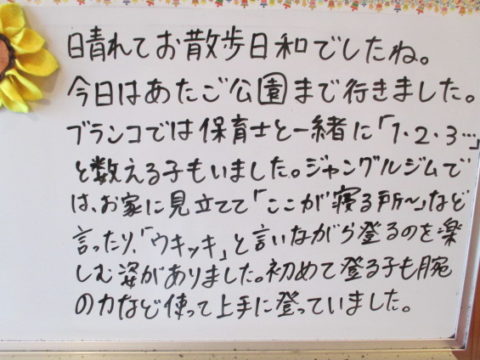 日晴れてお散歩日和でしたね。
今日はあたご公園まで行きました。
ブランコでは保育士と一緒に「1・2・3…」
と数える子もいました。ジャングルジムで
は、お家に見立てて「ここが寝る所~」など
言ったり、「ウキッキ」と言いながら登るのを楽
しむ姿がありました。初めて登る子も腕
の力など使って上手に登っていました。